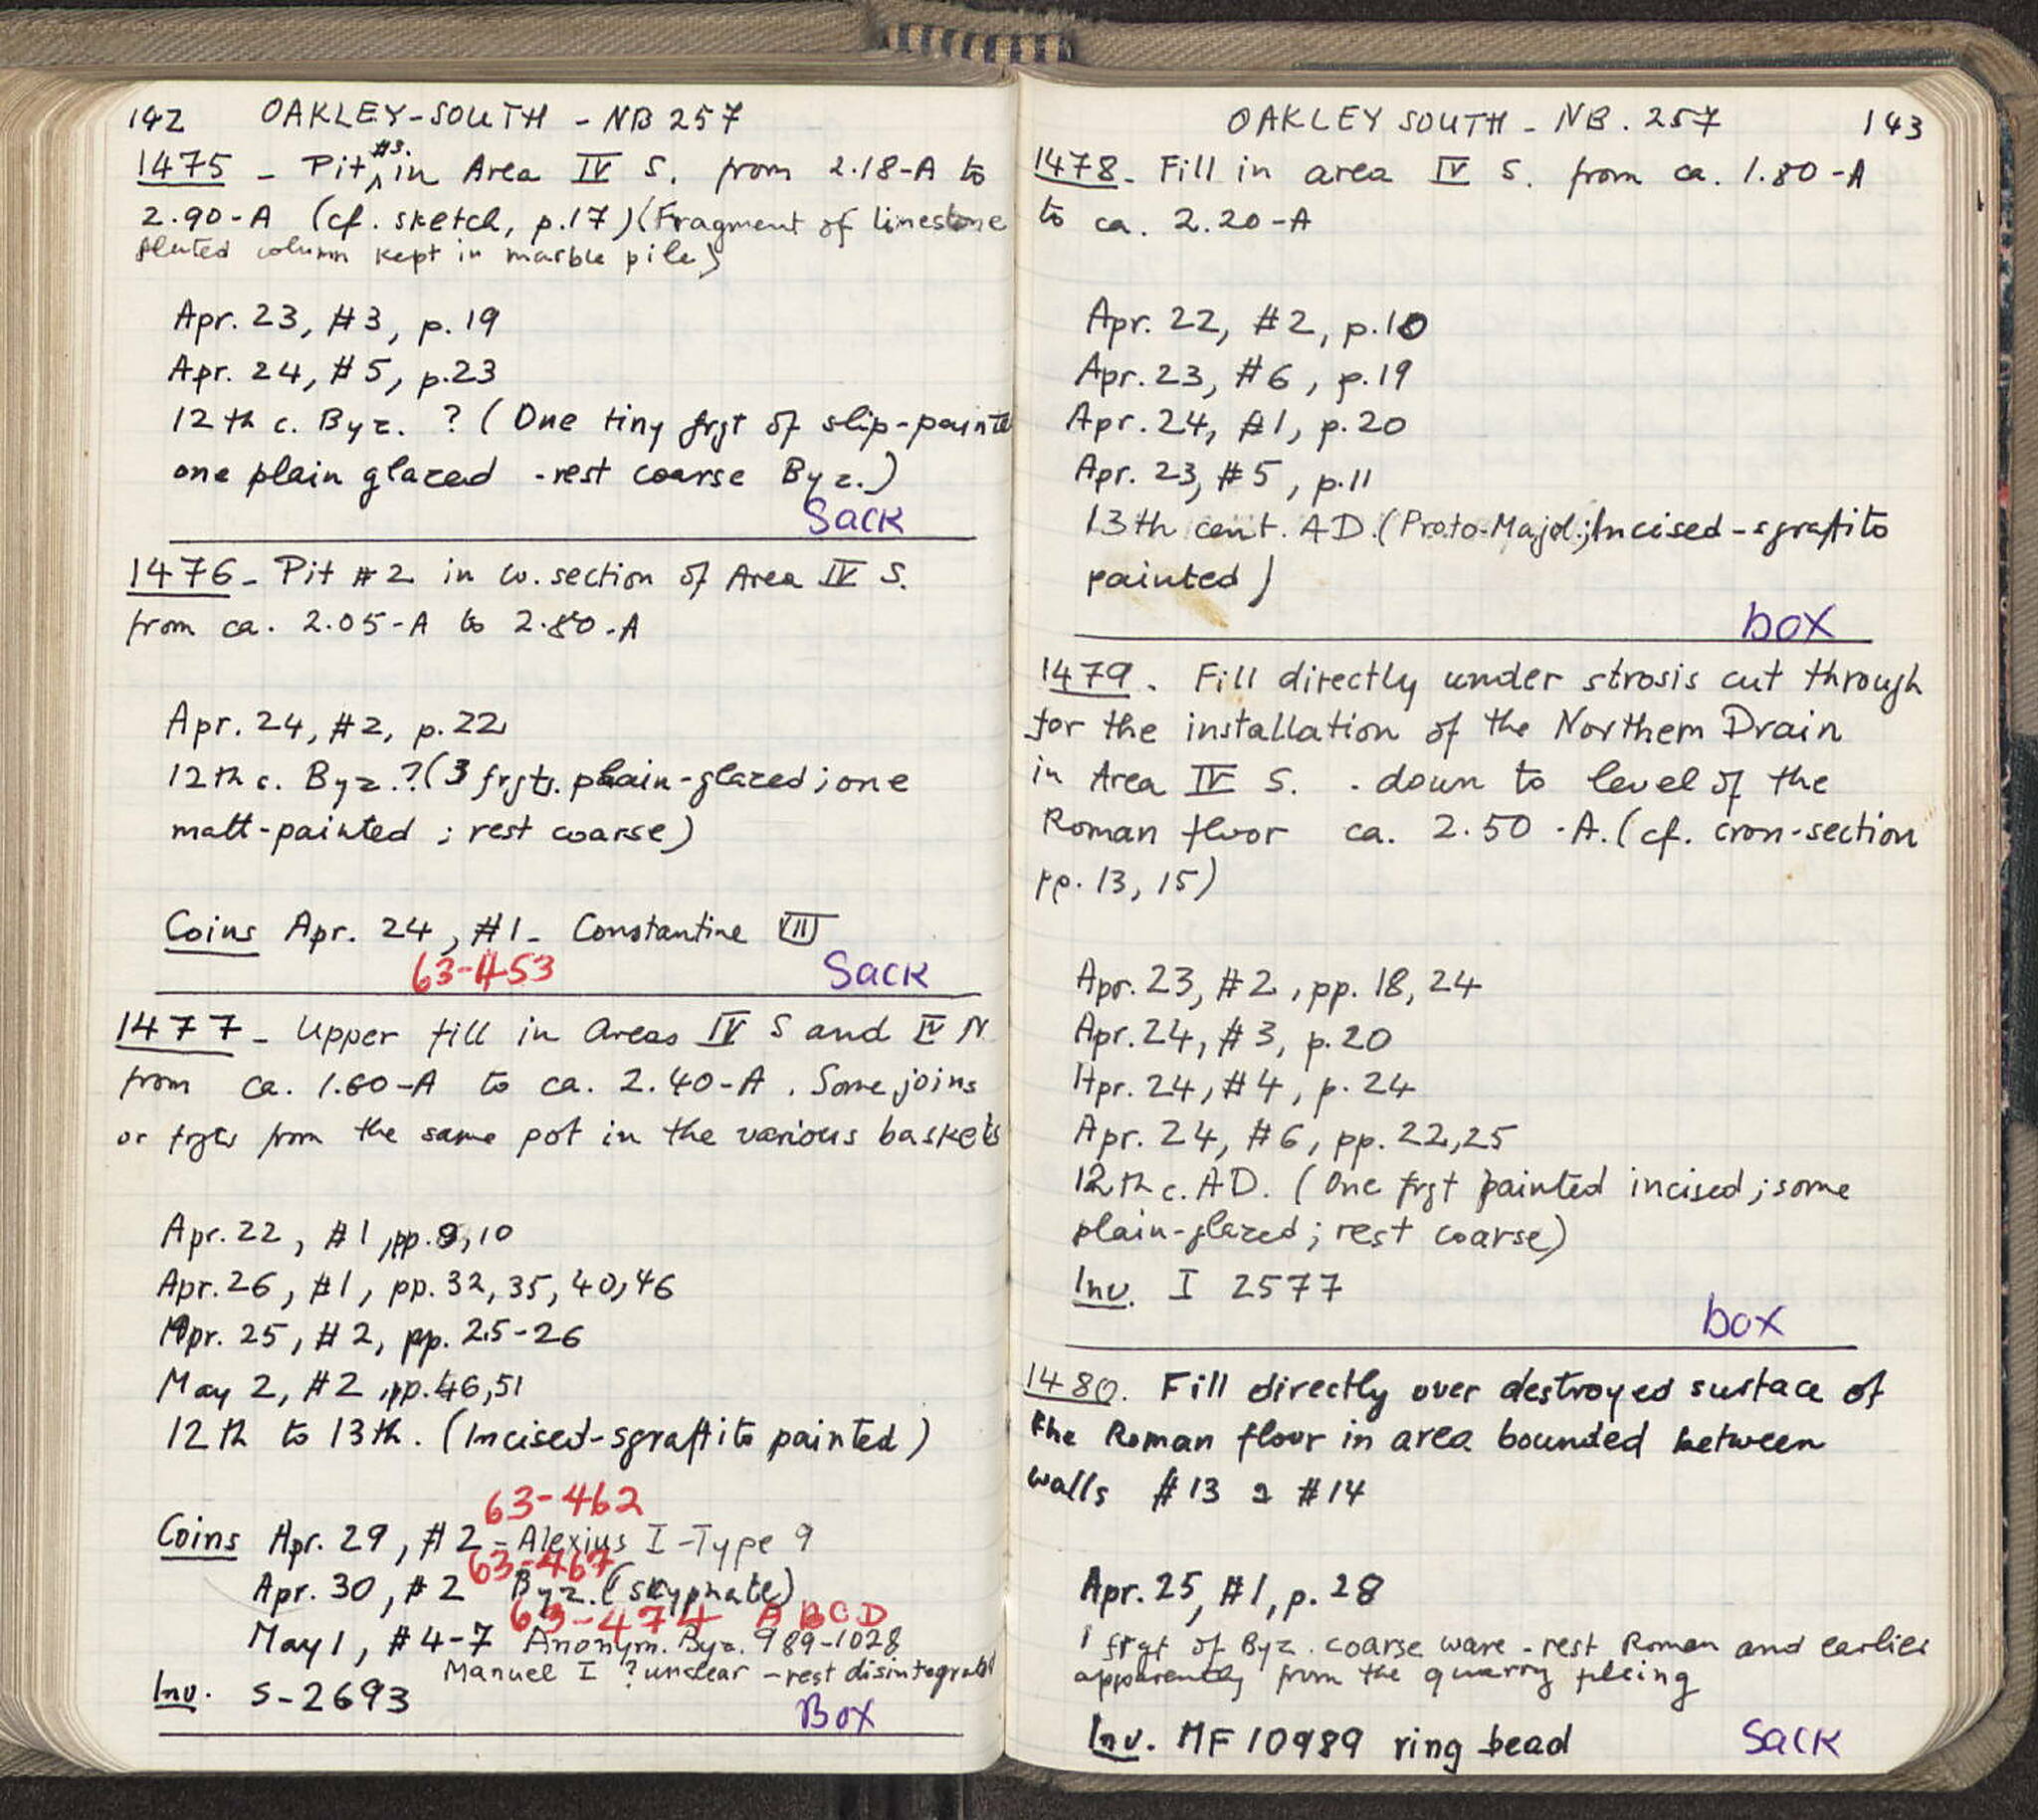 142 OAKLEY-SOUTH - NB 257
1475 - Pit #3. in Area IV S. from 2.18-A to
2.90-A (cf. sketch, p.17) (Fragment of limestone
fluted column kept in marble pile)
Apr. 23, #3, p.19
Apr. 24, #5, p.23
12th c. Byz. ? (One tiny frgt of slip-painted
one plain glazed - rest coarse Byz.)
Sack
1476 - Pit #2 in W. section of Area IV S.
from ca. 2.05-A to 2.80-A
Apr. 24, #2, p.22
12th c. Byz.? (3 frgts. plain-glazed; one
matt-painted; rest coarse)
Coins Apr. 24, #1 - Constantine VII
63-453
Sack
1477 - Upper fill in Areas IV S and IV N
from ca. 1.60-A to ca. 2.40-A. Some joins
or frgts from the same pot in the various baskets
Apr. 22, #1, pp. 9, 10
Apr. 26, #1, pp. 32, 35, 40, 46
Apr. 25, #2, pp. 25-26
May 2, #2, pp. 46, 51
12th to 13th. (Incised-sgraffito painted)
63-462
Coins Apr. 29, #2 - Alexius I - Type 9
63-467
Apr. 30, #2 Byz. (skyphate)
63-474 A B C D
May 1, #4-7 Anonym. Byz. 989-1028
Manuel I ? unclear - rest disintegrated
Inv. S-2693
Box
OAKLEY SOUTH - NB. 257 143
1478 - Fill in area IV S. from ca. 1.80-A
to ca. 2.20-A
Apr. 22, #2, p.10
Apr. 23, #6, p.19
Apr. 24, #1, p.20
Apr. 23, #5, p.11
13th cent. AD. (Proto-Majol.; Incised-sgraffito
painted)
box
1479. Fill directly under strosis cut through
for the installation of the Northern Drain
in Area IV S. - down to level of the
Roman floor ca. 2.50-A. (cf. cross-section
pp. 13, 15)
Apr. 23, #2, pp. 18, 24
Apr. 24, #3, p.20
Apr. 24, #4, p. 24
Apr. 24, #6, pp. 22, 25
12th c. AD. (One frgt painted incised; some
plain-glazed; rest coarse)
Inv. I 2577
box
1480. Fill directly over destroyed surface of
the Roman floor in area bounded between
walls #13 & #14
Apr. 25, #1, p. 28
1 frgt of Byz. coarse ware - rest Roman and earlier
apparently from the quarry
Inv. MF 10989 ring bead
Sack